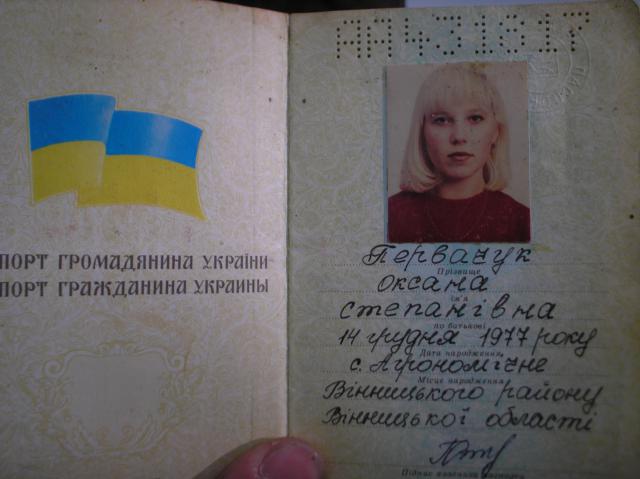 ПОРТ ГРОМАДЯНИНА УКРАЇНИ
ПОРТ ГРАЖДАНИНА УКРАИНЫ
АА431817
Первачук
Прізвище
Оксана
ім'я
Степанівна
по батькові
14 грудня 1977 року
Дата народження
с. Агрономічне
Місце народження
Вінницького району
Вінницької області
Підпис